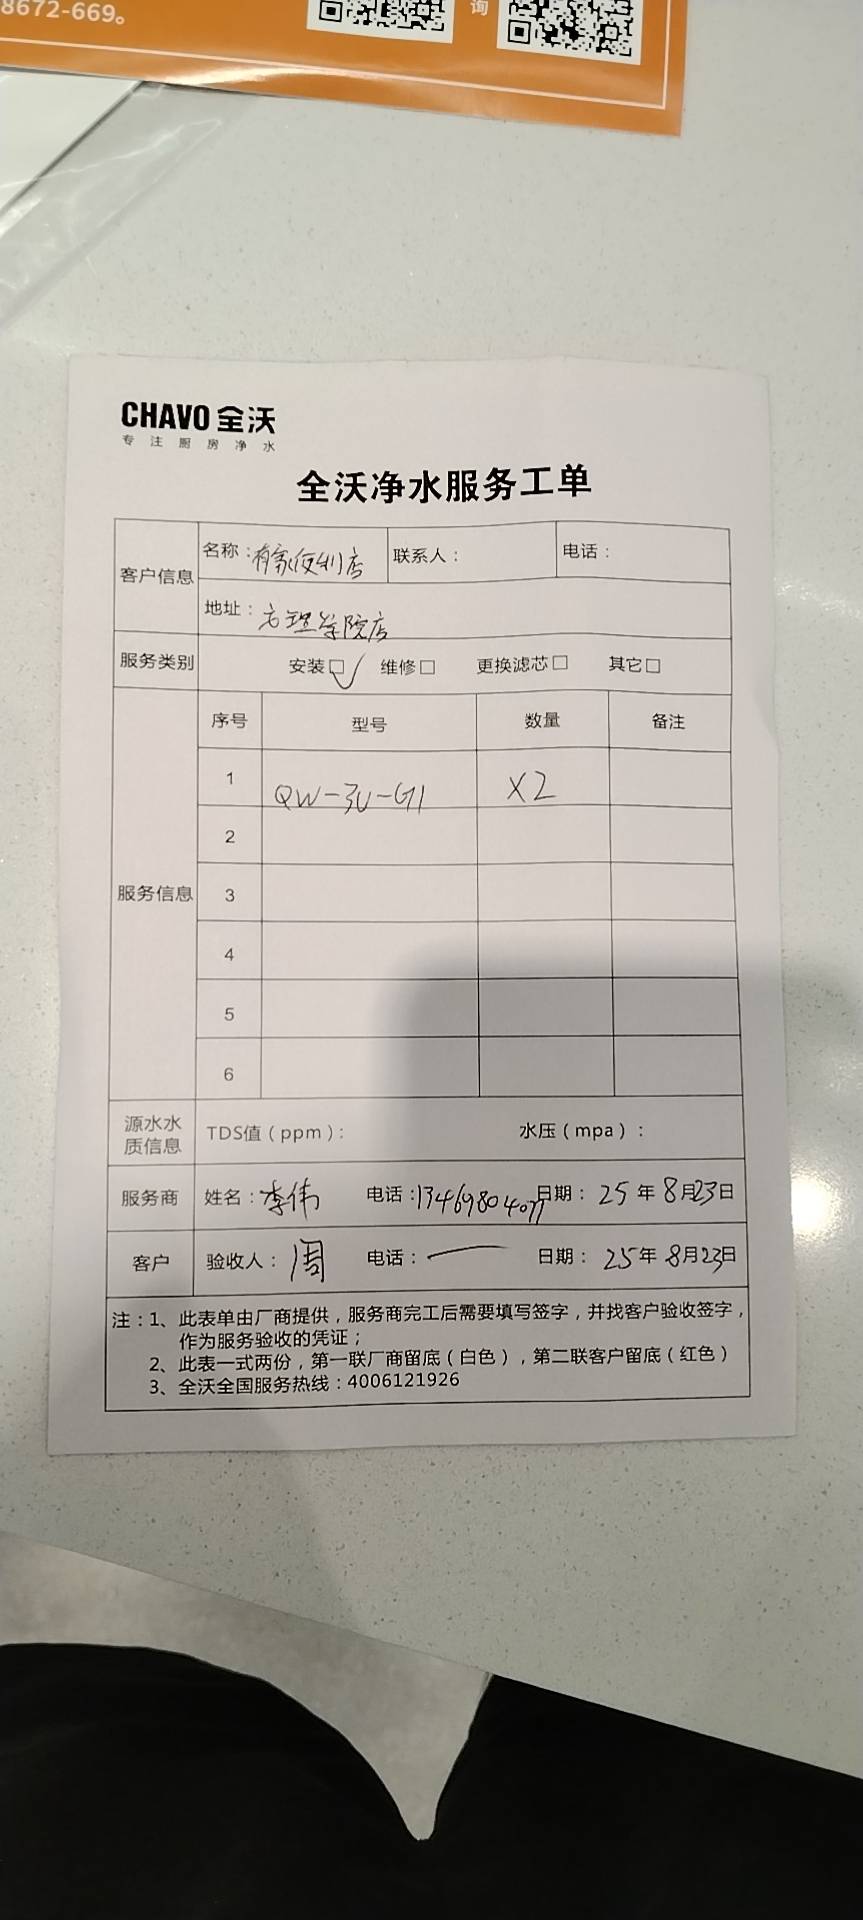 8672-669。
询
CHAVO 全沃
专注厨房净水
全沃净水服务工单
客户信息 名称：有家便利店 联系人： 电话：
地址：文理学院店
服务类别 安装□✓ 维修□ 更换滤芯□ 其它□
服务信息 序号 型号 数量 备注
1 QW-3U-G1 X2
2
3
4
5
6
源水水质信息 TDS值（ppm）： 水压（mpa）：
服务商 姓名：李伟 电话：13469804077 日期：25年8月23日
客户 验收人：周 电话：— 日期：25年8月23日
注：1、此表单由厂商提供，服务商完工后需要填写签字，并找客户验收签字，
作为服务验收的凭证；
2、此表一式两份，第一联厂商留底（白色），第二联客户留底（红色）
3、全沃全国服务热线：4006121926